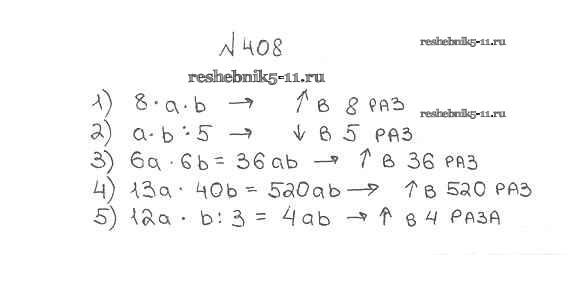 №408
reshebnik5-11.ru
reshebnik5-11.ru
1) 8·a·b → ↑ в 8 раз
reshebnik5-11.ru
2) a·b:5 → ↓ в 5 раз
3) 6a·6b = 36ab → ↑ в 36 раз
4) 13a·40b = 520ab → ↑ в 520 раз
5) 12a·b:3 = 4ab → ↑ в 4 раза